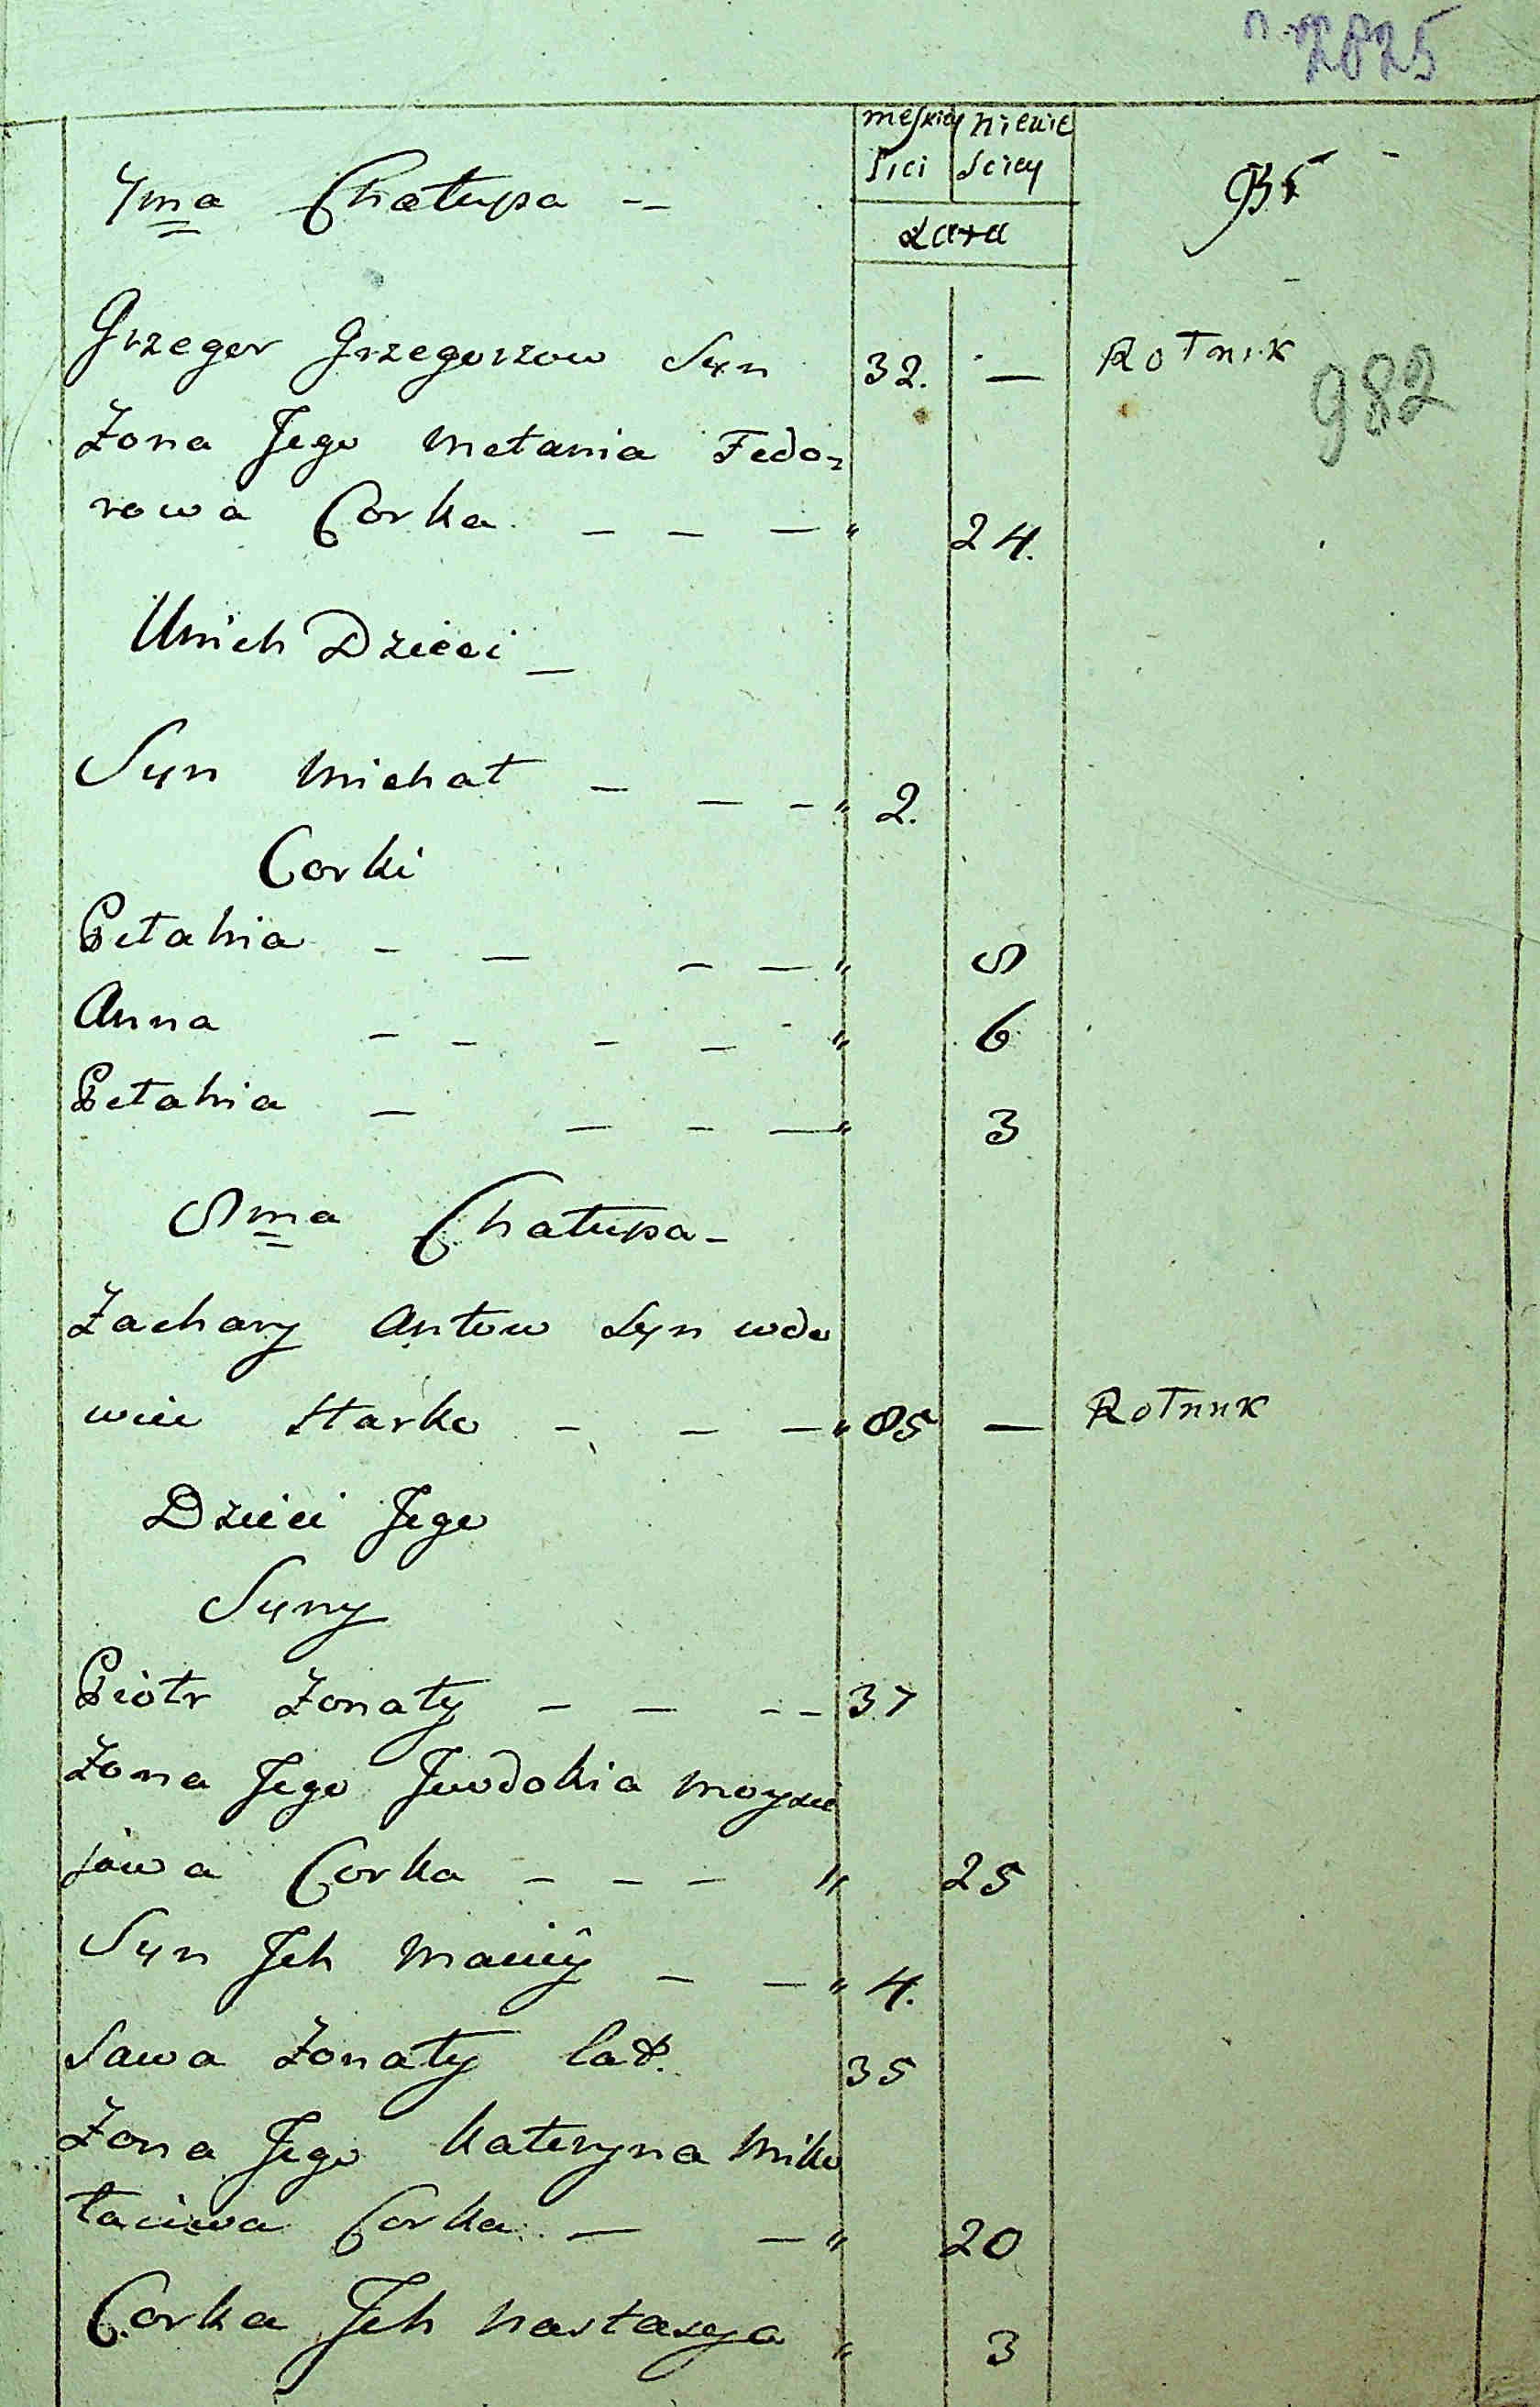 2825
męskiey niewie
płci ściey
7ma Chałupa --
Lata
Grzegor Grzegorzow Syn 32. — Rolnik
982
Żona Jego Mełania Fedo=
rowa Corka - - - " 24.
U nich Dzieci -
Syn Michał - - - " 2.
Corki
Pełahia - - - - " 8
Anna - - - - - " 6
Pełahia - - - - " 3
8ma Chałupa -
Zachary Antow Syn wdo
wiec Starko - - - " 85 — Rolnik
Dzieci Jego
Syny
Piotr Żonaty - - - - 37
Żona Jego Jewdokia Moysie
jowa Corka - - - " 25
Syn Jch Maciiy - - " 4.
Sawa Żonaty lat. 35
Żona Jego Kateryna Miko
łaiowa Corka - - " 20
Corka Jch Nastazya " 3